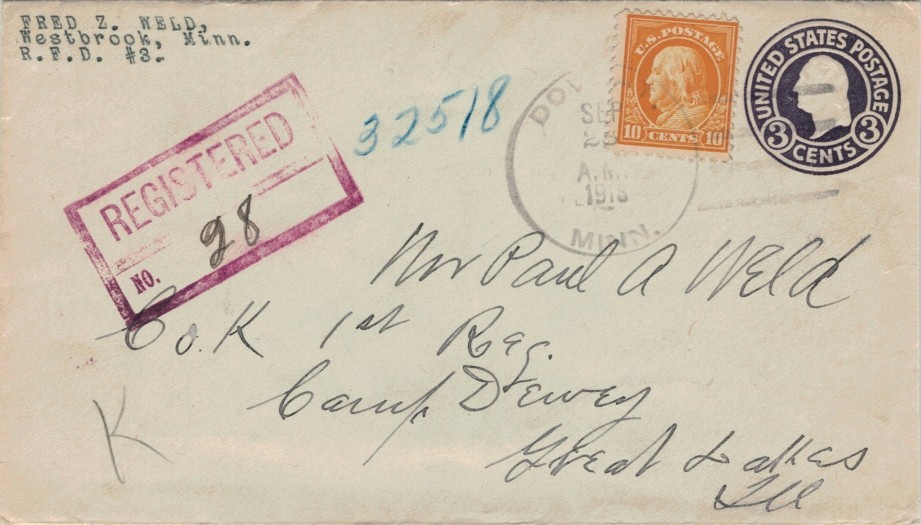 FRED Z. WELD,
Westbrook, Minn.
R.F.D. #3.
U.S. POSTAGE
10 CENTS 10
UNITED STATES POSTAGE
3 CENTS 3
REGISTERED
NO. 98
32518
SEP
A.M.
1918
MINN.
Mr Paul A Weld
Co. K 1st Reg.
Camp Dewey
Great Lakes
Ill
K